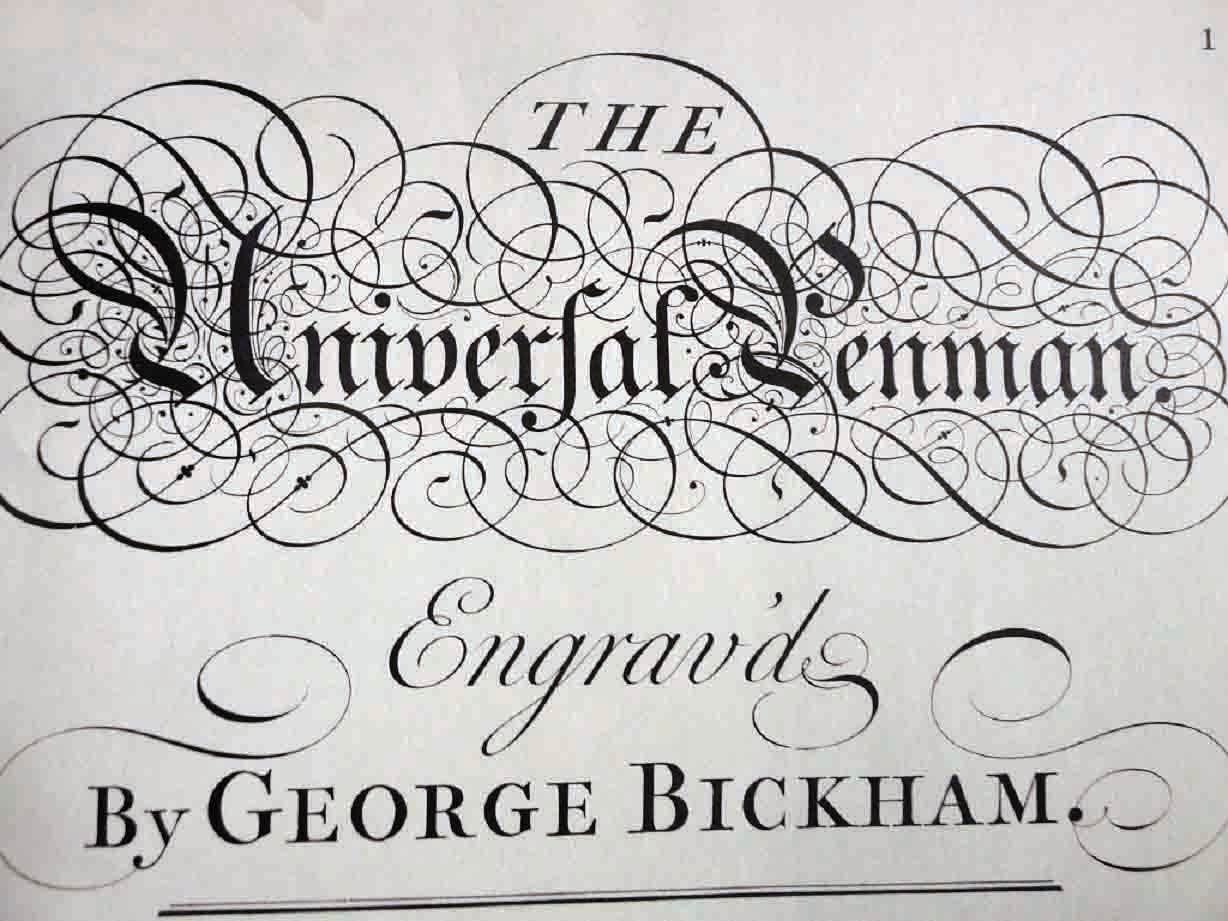 1
THE
Univerſal Penman.
Engrav'd
By GEORGE BICKHAM.